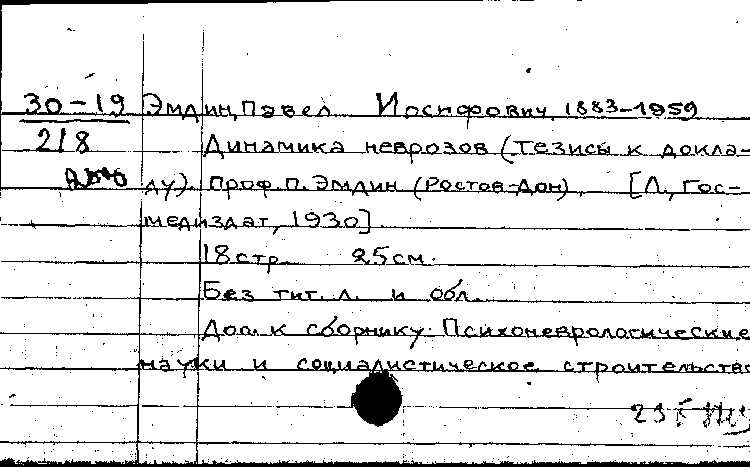 30-19 Эмдин, Павел Иосифович, 1883-1959
218 Динамика неврозов (Тезисы к докла-
ду). Проф. П. Эмдин (Ростов-Дон). [Л., Гос-
медиздат, 1930]
18 стр. 25 см.
Без тит. л. и обл.
Доп. к сборнику: Психоневрологические
науки и социалистическое строительство